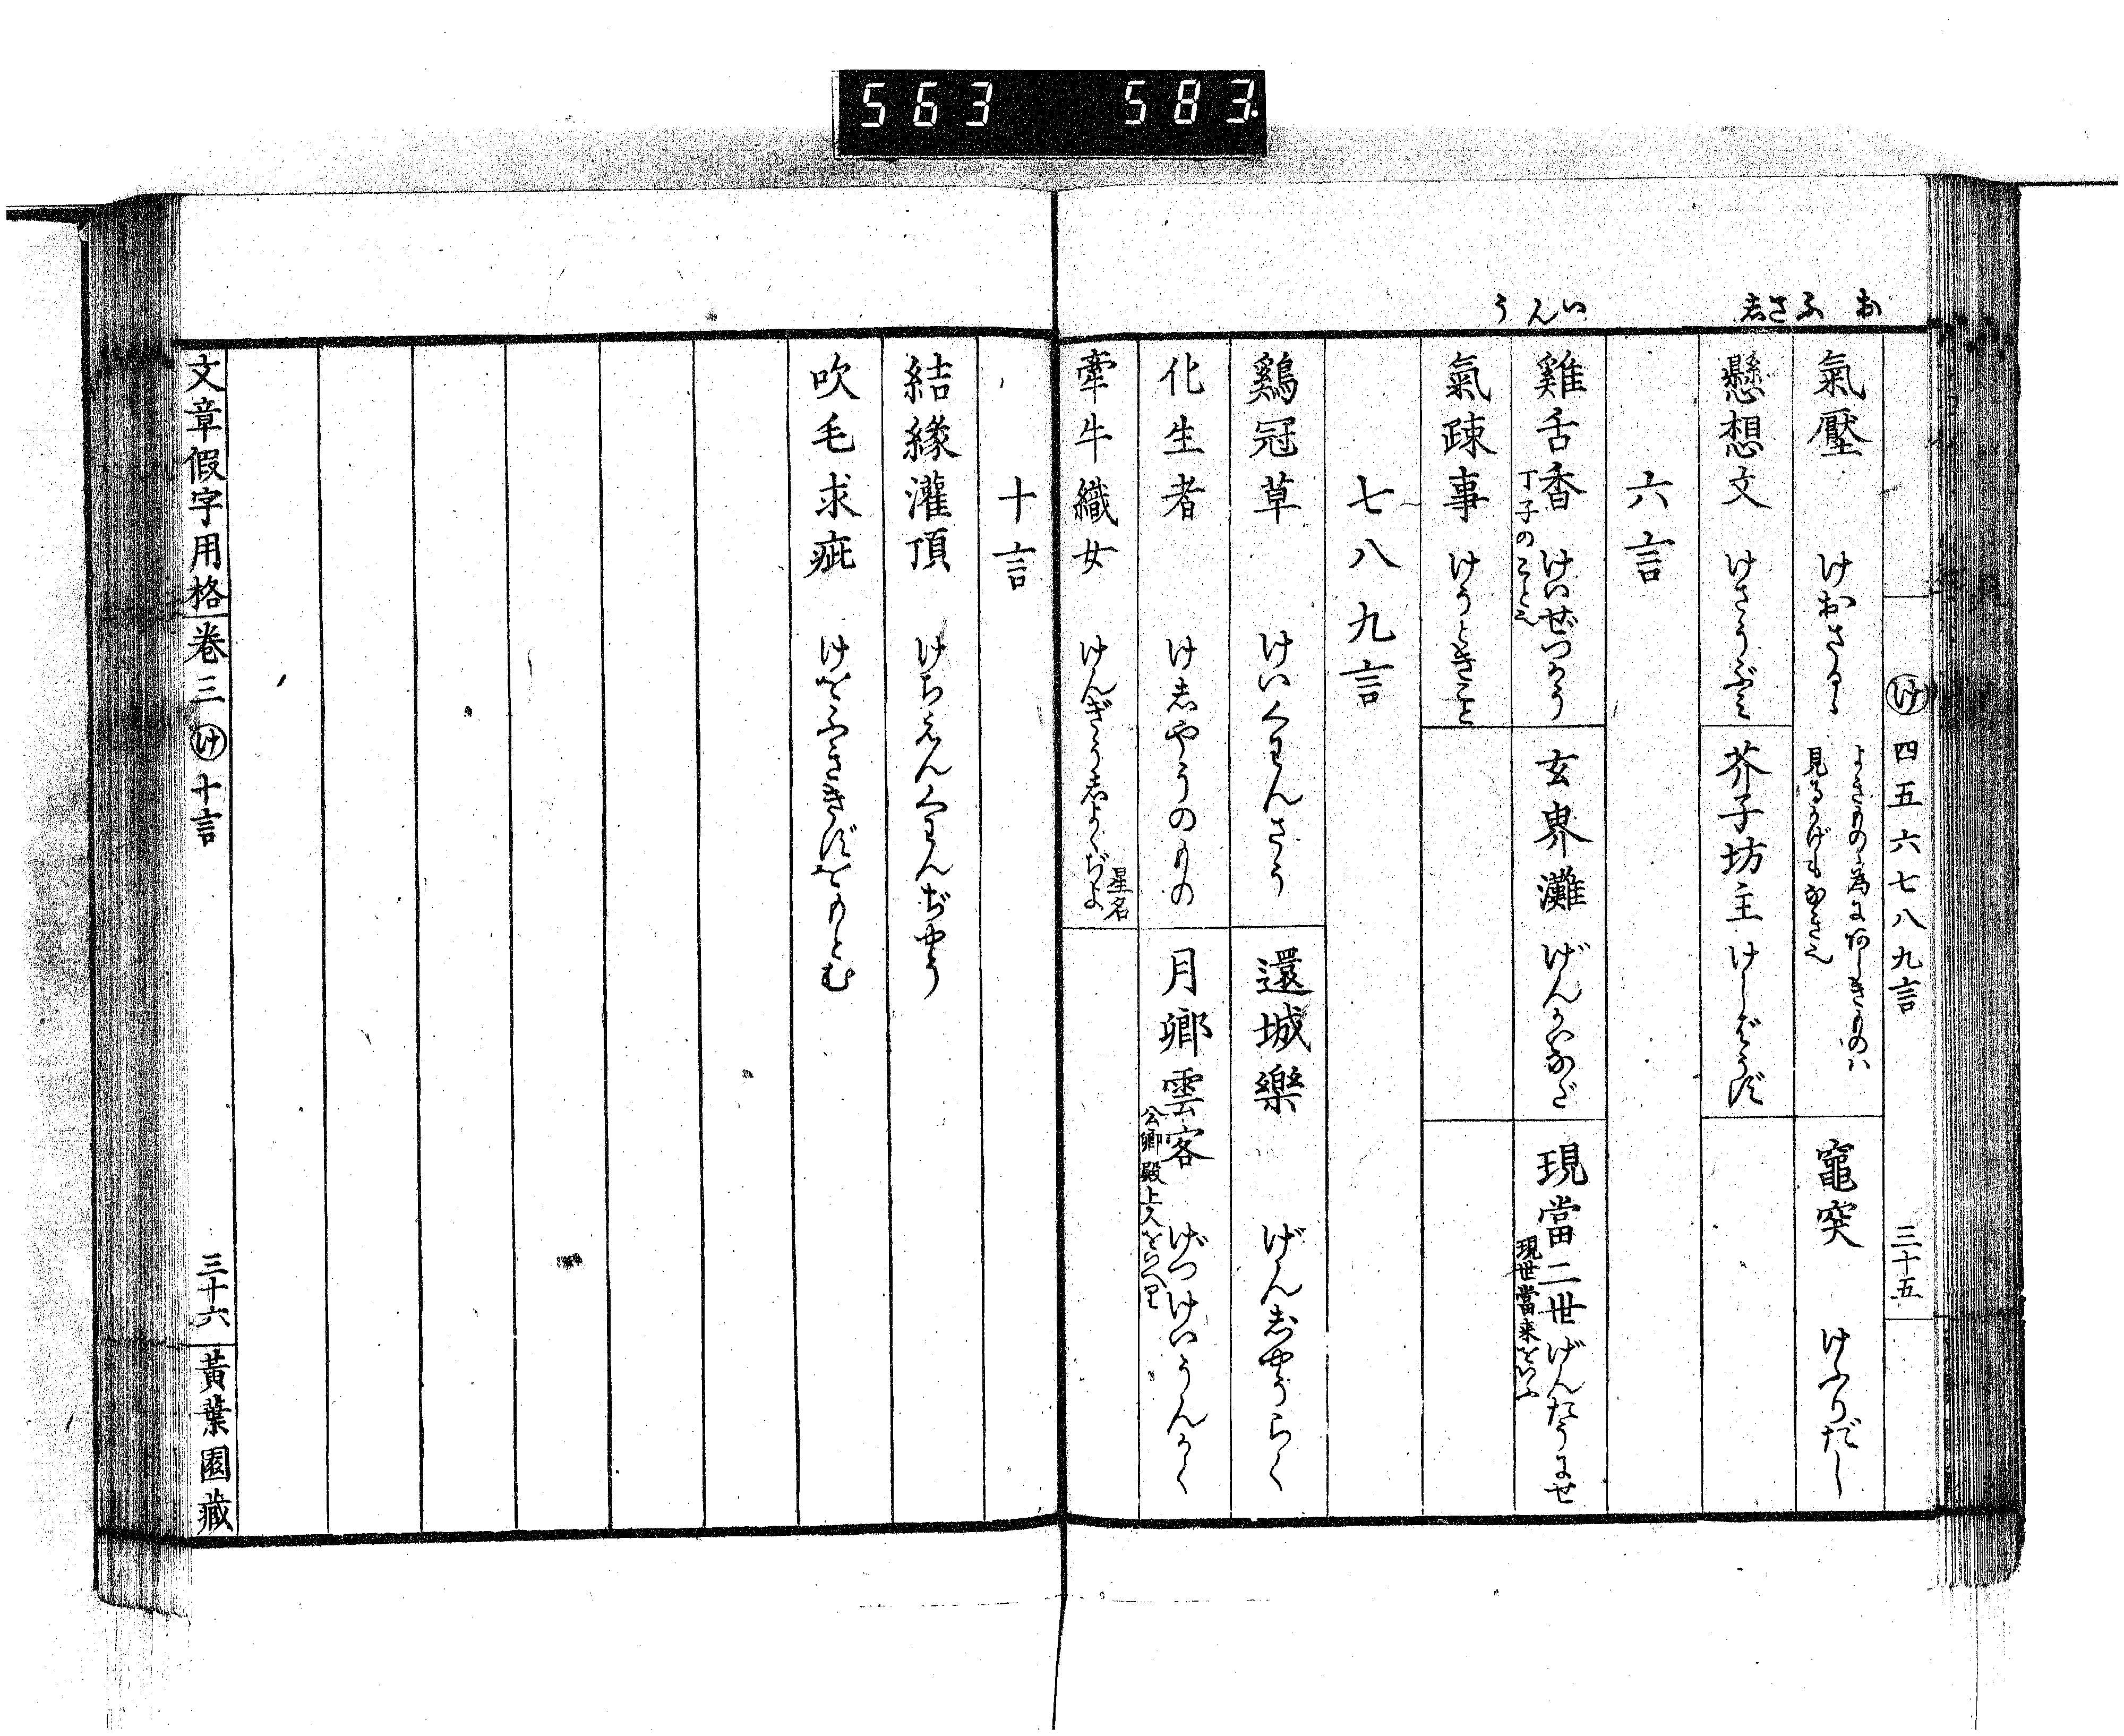 563 583
お ふさし いんう
け 四五六七八九言 三十五
氣壓 けおさるゝ よきものゝ為にあしきものハ
見るかげもなきこと
竈突 けふりだし
懸想文 けさうぶミ
芥子坊主 けしばうず
六言
雞舌香 けいぜつかう 丁子のこと也
玄界灘 げんかいなだ
現當二世 げんたうにせ 現世當来をいふ
氣疎事 けうときこと
七八九言
鷄冠草 けいくわんさう
還城樂 げんじやうらく
化生者 けしやうのもの
月卿雲客 げつけいうんかく 公卿殿上人をいへり
牽牛織女 けんぎうしよくぢよ 星名
十言
結緣灌頂 けちえんくわんぢやう
吹毛求疵 けをふききずをもとむ
文章假字用格 卷三 け 十言 三十六 黃葉園藏